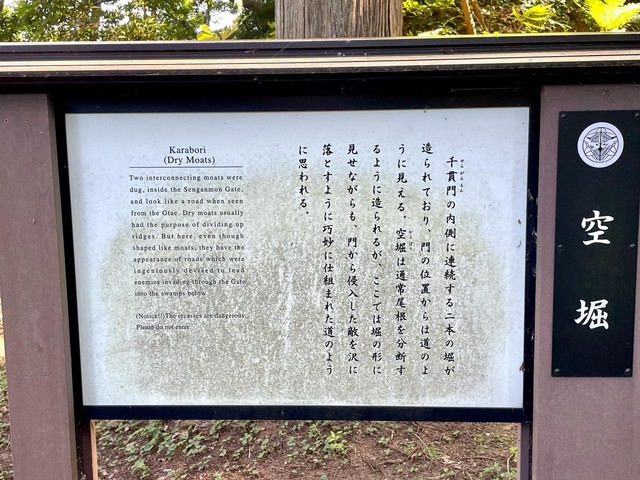 Karabori
(Dry Moats)
Two interconnecting moats were
dug, inside the Senganmon Gate,
and look like a road when seen
from the Gtae. Dry moats usually
had the purpose of dividing up
ridges. But here, even though
shaped like moats, they have the
appearance of roads which were
ingeniously devised to lead
enemies invading through the Gate
into the swamps below.
(Notice!)The recesses are dangerous.
Please do not enter.
千貫門の内側に連続する二本の堀が
造られており、門の位置からは道のよ
うに見える。空堀は通常尾根を分断す
るように造られるが、ここでは堀の形に
見せながらも、門から侵入した敵を沢に
落とすように巧妙に仕組まれた道のよう
に思われる。
空堀